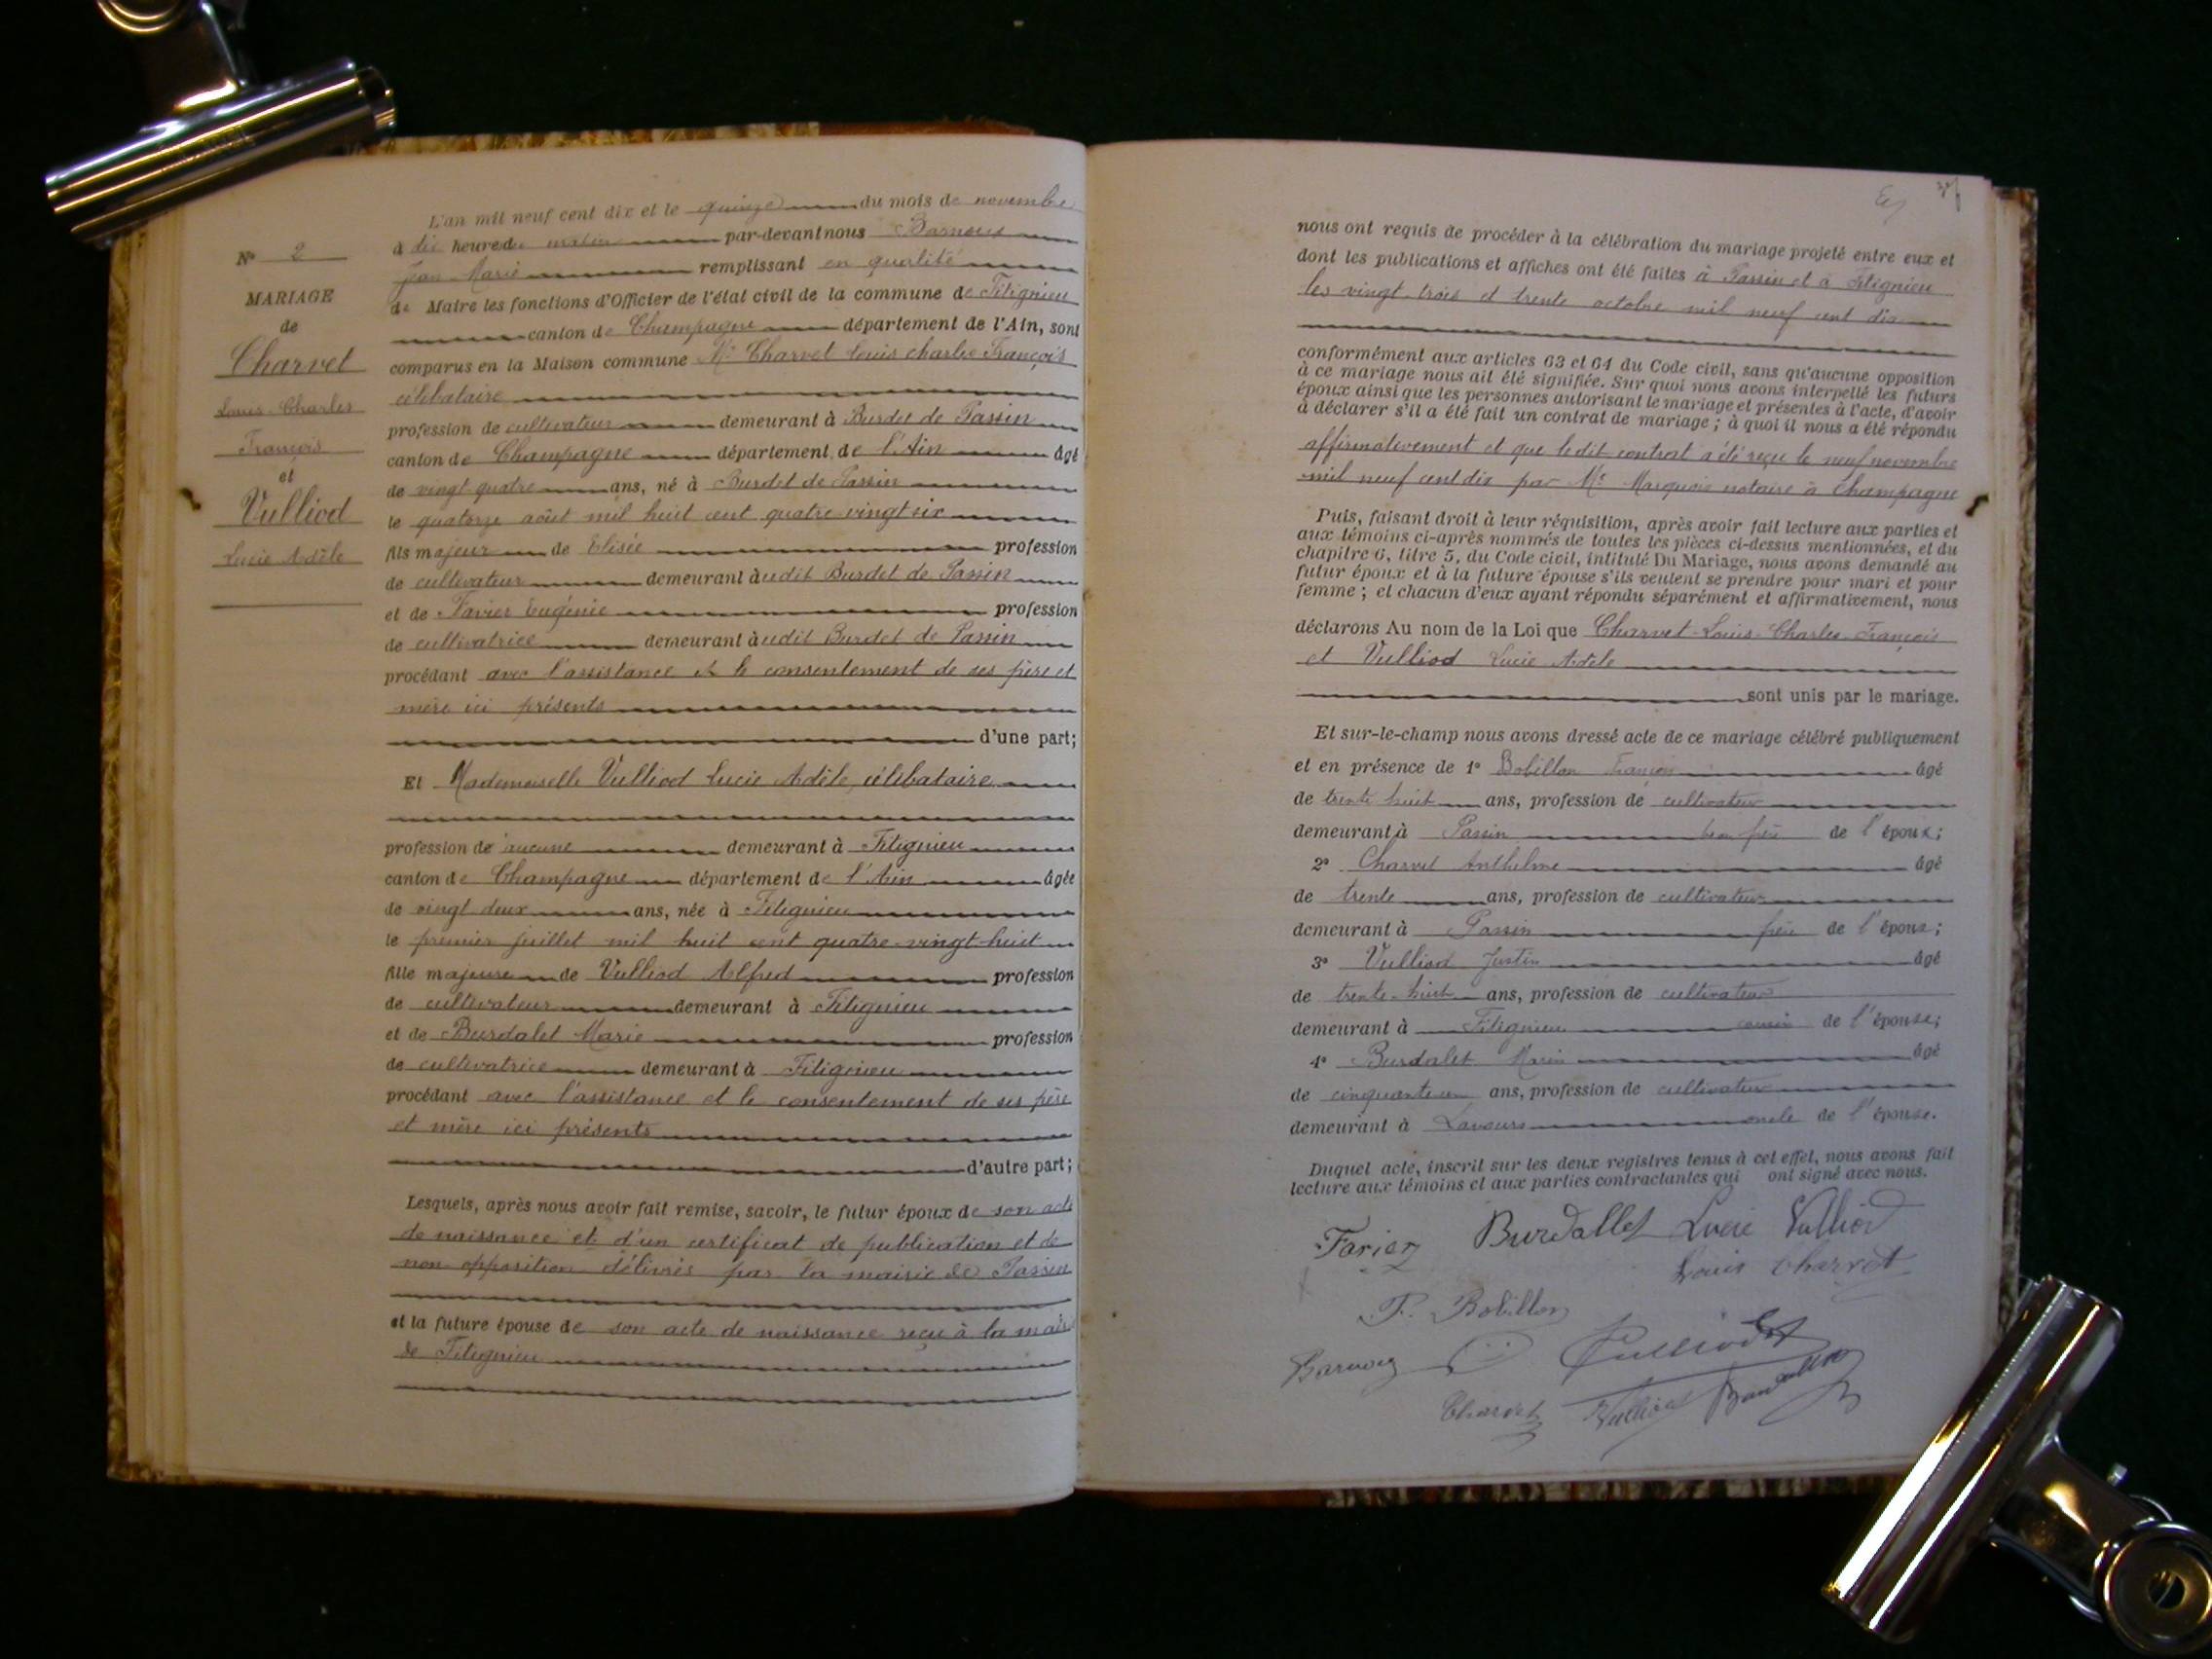 N° 2
MARIAGE
de
Charvet
Louis Charles
François
et
Vulliod
Lucie Adèle
L'an mil neuf cent dix et le quinze du mois de novembre
à dix heures du matin par-devant nous
Jean Marie remplissant en qualité
de Maire les fonctions d'Officier de l'état civil de la commune de Fitignieu
canton de Champagne département de l'Ain, sont
comparus en la Maison commune Mr Charvet Louis Charles François
célibataire
profession de cultivateur demeurant à Burdet de Passin
canton de Champagne département de l'Ain âgé
de vingt quatre ans, né à Burdet de Passin
le quatorze août mil huit cent quatre vingt six
fils majeur de Elisée profession
de cultivateur demeurant audit Burdet de Passin
et de Favier Eugénie profession
de cultivatrice demeurant audit Burdet de Passin
procédant avec l'assistance et le consentement de ses père et
mère ici présents
d'une part;
Et Mademoiselle Vulliod Lucie Adèle, célibataire
profession de aucune demeurant à Fitignieu
canton de Champagne département de l'Ain âgée
de vingt deux ans, née à Fitignieu
le premier juillet mil huit cent quatre-vingt-huit
fille majeure de Vulliod Alfred profession
de cultivateur demeurant à Fitignieu
et de Burdalet Marie profession
de cultivatrice demeurant à Fitignieu
procédant avec l'assistance et le consentement de ses père
et mère ici présents
d'autre part;
Lesquels, après nous avoir fait remise, savoir, le futur époux de son acte
de naissance et d'un certificat de publication et de
non opposition délivrés par la mairie de Passin
et la future épouse de son acte de naissance reçu à la mairie
de Fitignieu
nous ont requis de procéder à la célébration du mariage projeté entre eux et
dont les publications et affiches ont été faites à Passin et à Fitignieu
les vingt-trois et trente octobre mil neuf cent dix
conformément aux articles 63 et 64 du Code civil, sans qu'aucune opposition
à ce mariage nous ait été signifiée. Sur quoi nous avons interpellé les futurs
époux ainsi que les personnes autorisant le mariage et présentes à l'acte, d'avoir
à déclarer s'il a été fait un contrat de mariage ; à quoi il nous a été répondu
affirmativement et que ledit contrat a été reçu le neuf novembre
mil neuf cent dix par Me Marquois notaire à Champagne
Puis, faisant droit à leur réquisition, après avoir fait lecture aux parties et
aux témoins ci-après nommés de toutes les pièces ci-dessus mentionnées, et du
chapitre 6, titre 5, du Code civil, intitulé Du Mariage, nous avons demandé au
futur époux et à la future épouse s'ils veulent se prendre pour mari et pour
femme ; et chacun d'eux ayant répondu séparément et affirmativement, nous
déclarons Au nom de la Loi que Charvet Louis Charles François
et Vulliod Lucie Adèle
sont unis par le mariage.
Et sur-le-champ nous avons dressé acte de ce mariage célébré publiquement
et en présence de 1° Bobillon François âgé
de trente huit ans, profession de cultivateur
demeurant à Passin beau frère de l'époux;
2° Charvet Anthelme âgé
de trente ans, profession de cultivateur
demeurant à Passin frère de l'époux;
3° Vulliod Justin âgé
de trente-huit ans, profession de cultivateur
demeurant à Fitignieu cousin de l'épouse;
4° Burdalet Marin âgé
de cinquante un ans, profession de cultivateur
demeurant à Lavours oncle de l'épouse.
Duquel acte, inscrit sur les deux registres tenus à cet effet, nous avons fait
lecture aux témoins et aux parties contractantes qui ont signé avec nous.
Favier Burdallet Lucie Vulliod
Louis Charvet
F. Bobillon
Vulliod
Charvet Vulliod